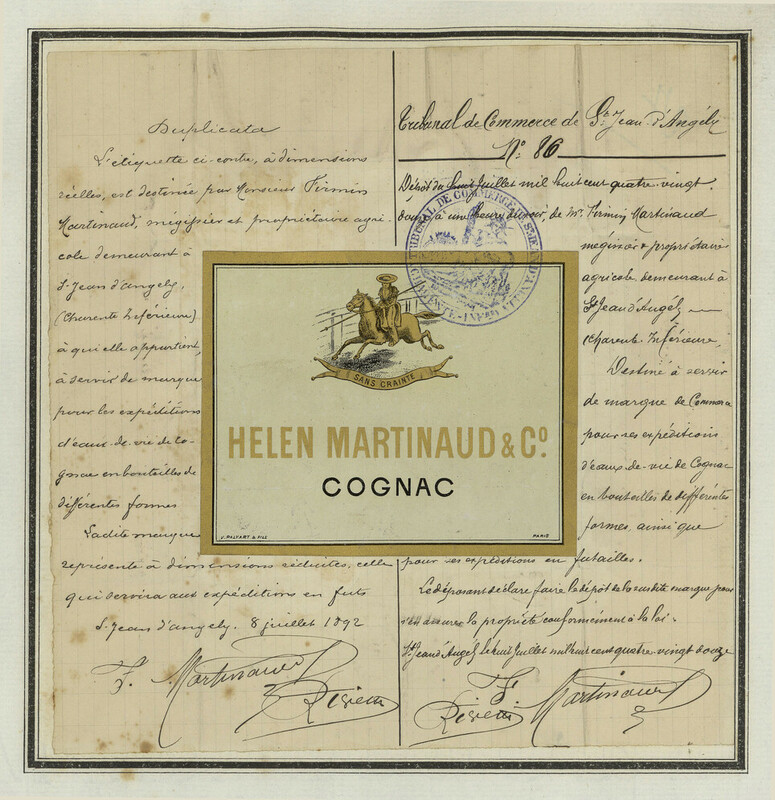 Duplicata
L'étiquette ci-contre, à dimensions
réelles, est destinée par Monsieur Firmin
Martinaud, mégissier et propriétaire agri-
cole demeurant à
St Jean d'angely,
(Charente Inférieure)
à qui elle appartient,
à servir de marque
pour les expéditions
d'eaux-de-vie de Co-
gnac en bouteilles de
différentes formes
Ladite marque
représente à dimensions réduites, celle
qui servira aux expéditions en futs
St Jean d'angely, 8 juillet 1892
F. Martinaud
Tribunal de Commerce de St Jean d'Angély
No 86
Dépôt du huit Juillet mil huit cent quatre-vingt
douze à une heure du soir, de Mr Firmin Martinaud
mégissier & propriétaire
agricole demeurant à
St Jean d'Angély
(Charente Inférieure,
Destiné à servir
de marque de Commerce
pour ses expéditions
d'eaux-de-vie de Cognac
en bouteilles de différentes
formes, ainsi que
pour ses expéditions en futailles.
Le déposant déclare faire le dépôt de la susdite marque pour
s'en assurer la propriété conformément à la loi.
St Jean d'Angély le huit Juillet mil huit cent quatre-vingt douze
F. Martinaud
TRIBUNAL DE COMMERCE ST JEAN D'ANGELY
CHARENTE-INFRE
SANS CRAINTE
HELEN MARTINAUD & Co.
COGNAC
PARIS